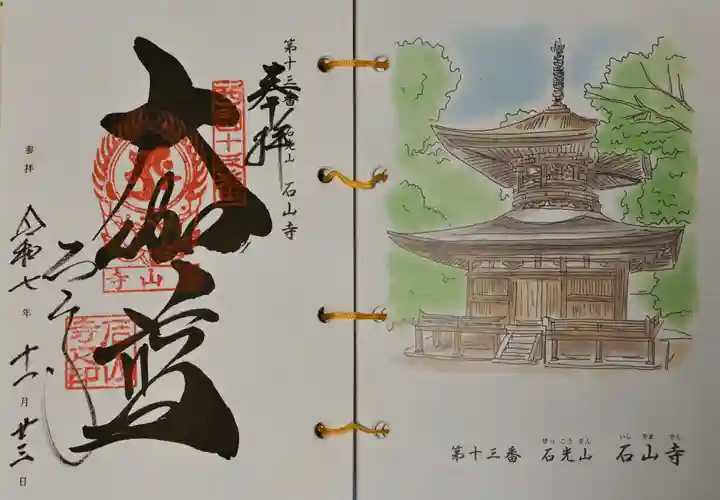 第十三番 石光山 石山寺
奉拝
西国十三番
大伽藍
石山寺
参拝
令和七年十一月廿三日
せっこうざん いしやまでら
第十三番 石光山 石山寺